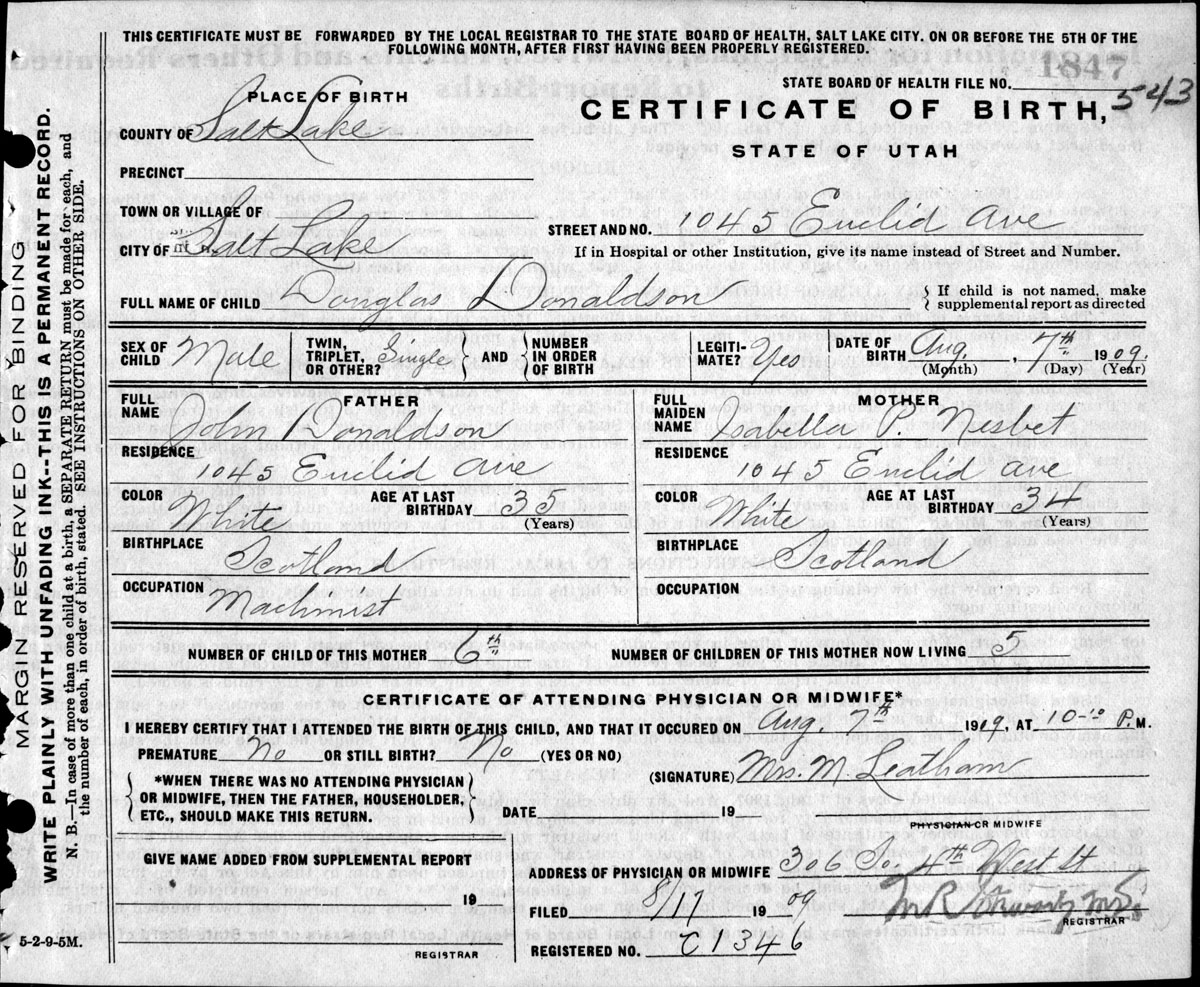 THIS CERTIFICATE MUST BE FORWARDED BY THE LOCAL REGISTRAR TO THE STATE BOARD OF HEALTH, SALT LAKE CITY. ON OR BEFORE THE 5TH OF THE
FOLLOWING MONTH, AFTER FIRST HAVING BEEN PROPERLY REGISTERED.
STATE BOARD OF HEALTH FILE NO. 1847
543
PLACE OF BIRTH
CERTIFICATE OF BIRTH,
COUNTY OF Salt Lake
STATE OF UTAH
PRECINCT
TOWN OR VILLAGE OF
STREET AND NO. 1045 Euclid Ave
CITY OF Salt Lake
If in Hospital or other Institution, give its name instead of Street and Number.
FULL NAME OF CHILD Douglas Donaldson
If child is not named, make
supplemental report as directed
SEX OF CHILD Male
TWIN, TRIPLET, OR OTHER? Single
AND
NUMBER IN ORDER OF BIRTH
LEGITIMATE? Yes
DATE OF BIRTH Aug., 7th 1909.
(Month) (Day) (Year)
FATHER
FULL NAME John Donaldson
RESIDENCE
1045 Euclid Ave
COLOR White
AGE AT LAST BIRTHDAY 35
(Years)
BIRTHPLACE
Scotland
OCCUPATION
Machinist
MOTHER
FULL MAIDEN NAME Isabella P. Nesbet
RESIDENCE
1045 Euclid Ave
COLOR White
AGE AT LAST BIRTHDAY 34
(Years)
BIRTHPLACE
Scotland
OCCUPATION
NUMBER OF CHILD OF THIS MOTHER 6th
NUMBER OF CHILDREN OF THIS MOTHER NOW LIVING 5
CERTIFICATE OF ATTENDING PHYSICIAN OR MIDWIFE*
I HEREBY CERTIFY THAT I ATTENDED THE BIRTH OF THIS CHILD, AND THAT IT OCCURED ON Aug. 7th 1909, AT 10-10 P.M.
PREMATURE No OR STILL BIRTH? No (YES OR NO)
(SIGNATURE) Mrs. M. Leatham
*WHEN THERE WAS NO ATTENDING PHYSICIAN
OR MIDWIFE, THEN THE FATHER, HOUSEHOLDER,
ETC., SHOULD MAKE THIS RETURN.
DATE 19
PHYSICIAN OR MIDWIFE
GIVE NAME ADDED FROM SUPPLEMENTAL REPORT
19
REGISTRAR
ADDRESS OF PHYSICIAN OR MIDWIFE 306 So. 4th West St
FILED 8/17 1909
REGISTRAR
REGISTERED NO. C1346
5-2-9-5M.
MARGIN RESERVED FOR BINDING
WRITE PLAINLY WITH UNFADING INK--THIS IS A PERMANENT RECORD.
N. B.--In case of more than one child at a birth, a SEPARATE RETURN must be made for each, and
the number of each, in order of birth, stated. SEE INSTRUCTIONS ON OTHER SIDE.